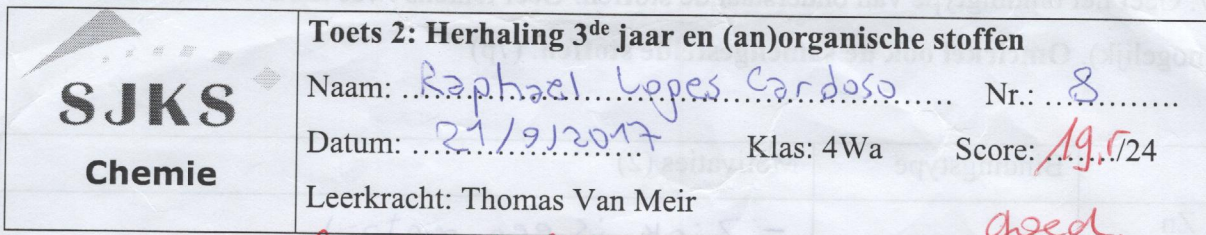 SJKS
Chemie
Toets 2: Herhaling 3de jaar en (an)organische stoffen
Naam: Raphael Lopes Cardoso Nr.: 8
Datum: 21/9/2017 Klas: 4Wa Score: 19,5/24
Leerkracht: Thomas Van Meir
goed